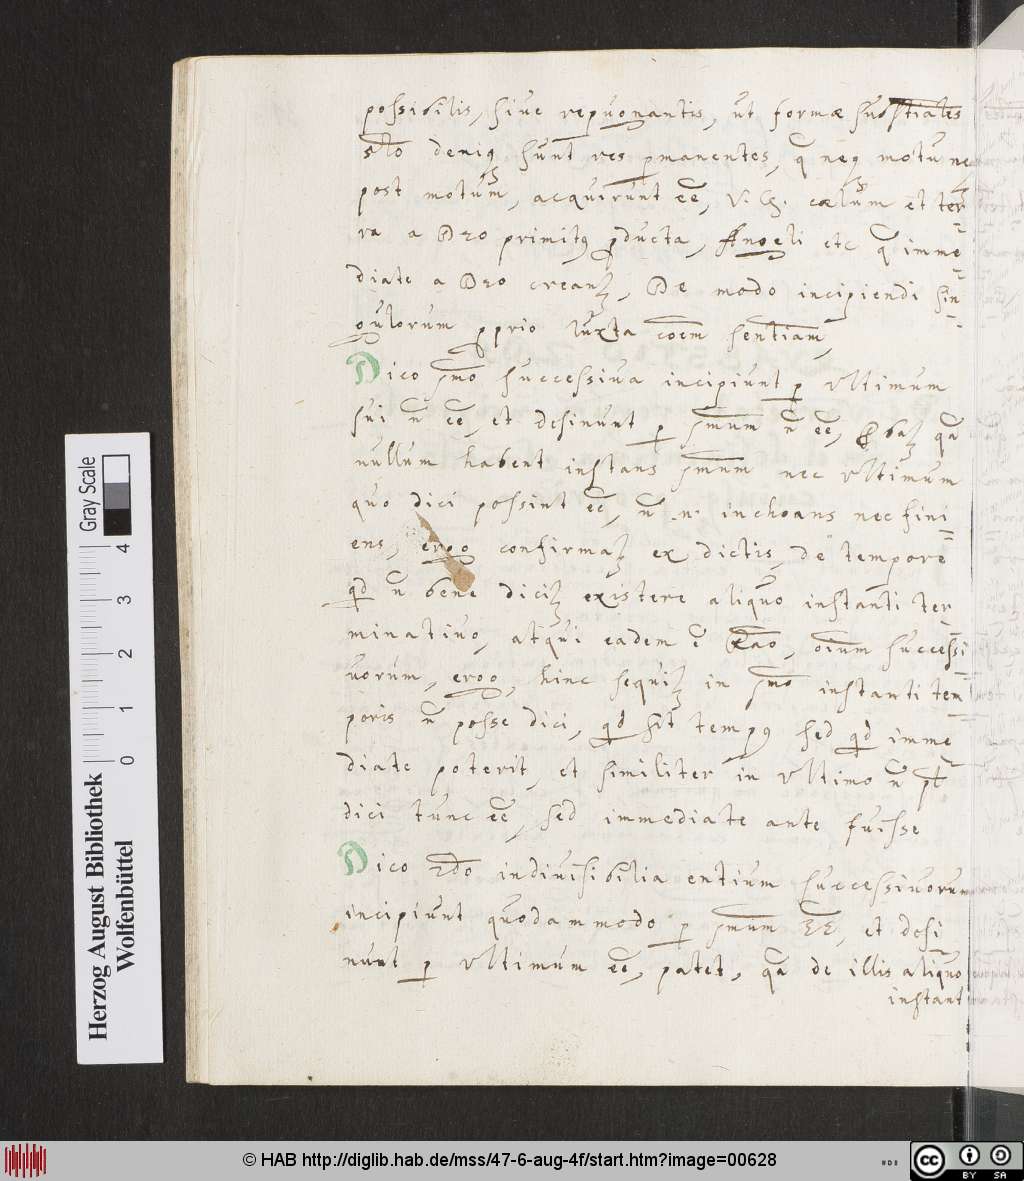 possibilis, sive repugnantis, ut formæ substiales
5to deniq sunt res pmanentes, q neq motu ne
post motum, acquirunt eē, V. G. cælum et ter
ra a Deo primitq pducta, Angeli etc q imme
diate a Deo creantz, De modo incipiendi sin
gulorum pprio iuxta coēm sentiam,
Dico pmo successiva incipiunt p ultimum
sui ñ eē, et desinunt p pmum ñ eē, pbatz qa
nullum habent instans pmum nec ultimum
quo dici possint eē, ñ .n. inchoans nec fini
ens, ergo confirmatz ex dictis, de tempore
qd ñ bene dicitz existere aliquo instanti ter
minativo, atqui eadem ē rao, oium successi
vorum, ergo, hinc sequitz in pmo instanti tem
poris ñ posse dici, qd sit tempq sed qd imme
diate poterit, et similiter in ultimo ñ pt
dici tunc eē, sed immediate ante fuisse
Dico 2do indivisibilia entium successivorum
incipiunt quodammodo p pmum eē, et desi
nunt p ultimum eē, patet, qa de illis aliquo
instant
Gray Scale
4
3
2
1
0
Herzog August Bibliothek
Wolfenbüttel
© HAB http://diglib.hab.de/mss/47-6-aug-4f/start.htm?image=00628
WDB
cc
BY SA